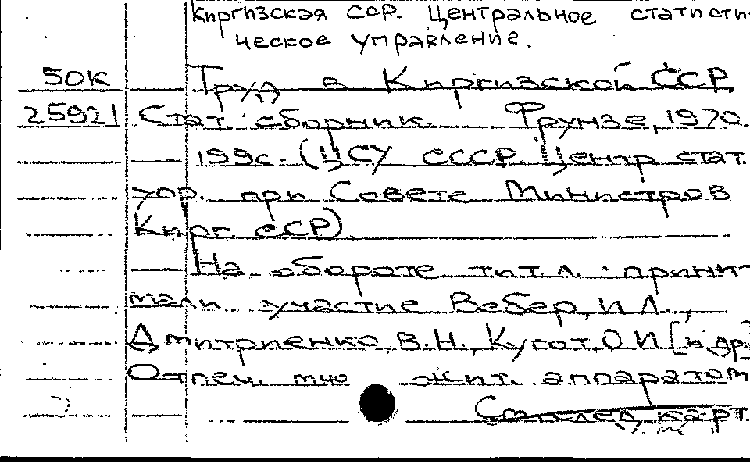 Киргизская ССР. Центральное статисти-
ческое управление.
50К Труд в Киргизской ССР
25921 Стат. сборник. Фрунзе, 1970.
199с. (ЦСУ СССР. Центр. стат.
упр. при Совете Министров
Кирг. ССР)
На обороте тит. л.: прини-
мали участие Вебер, И.Л.,
Дмитриенко, В.Н., Кугот, О.И. [и др]
Отпеч. мно жит. аппаратом
карт.